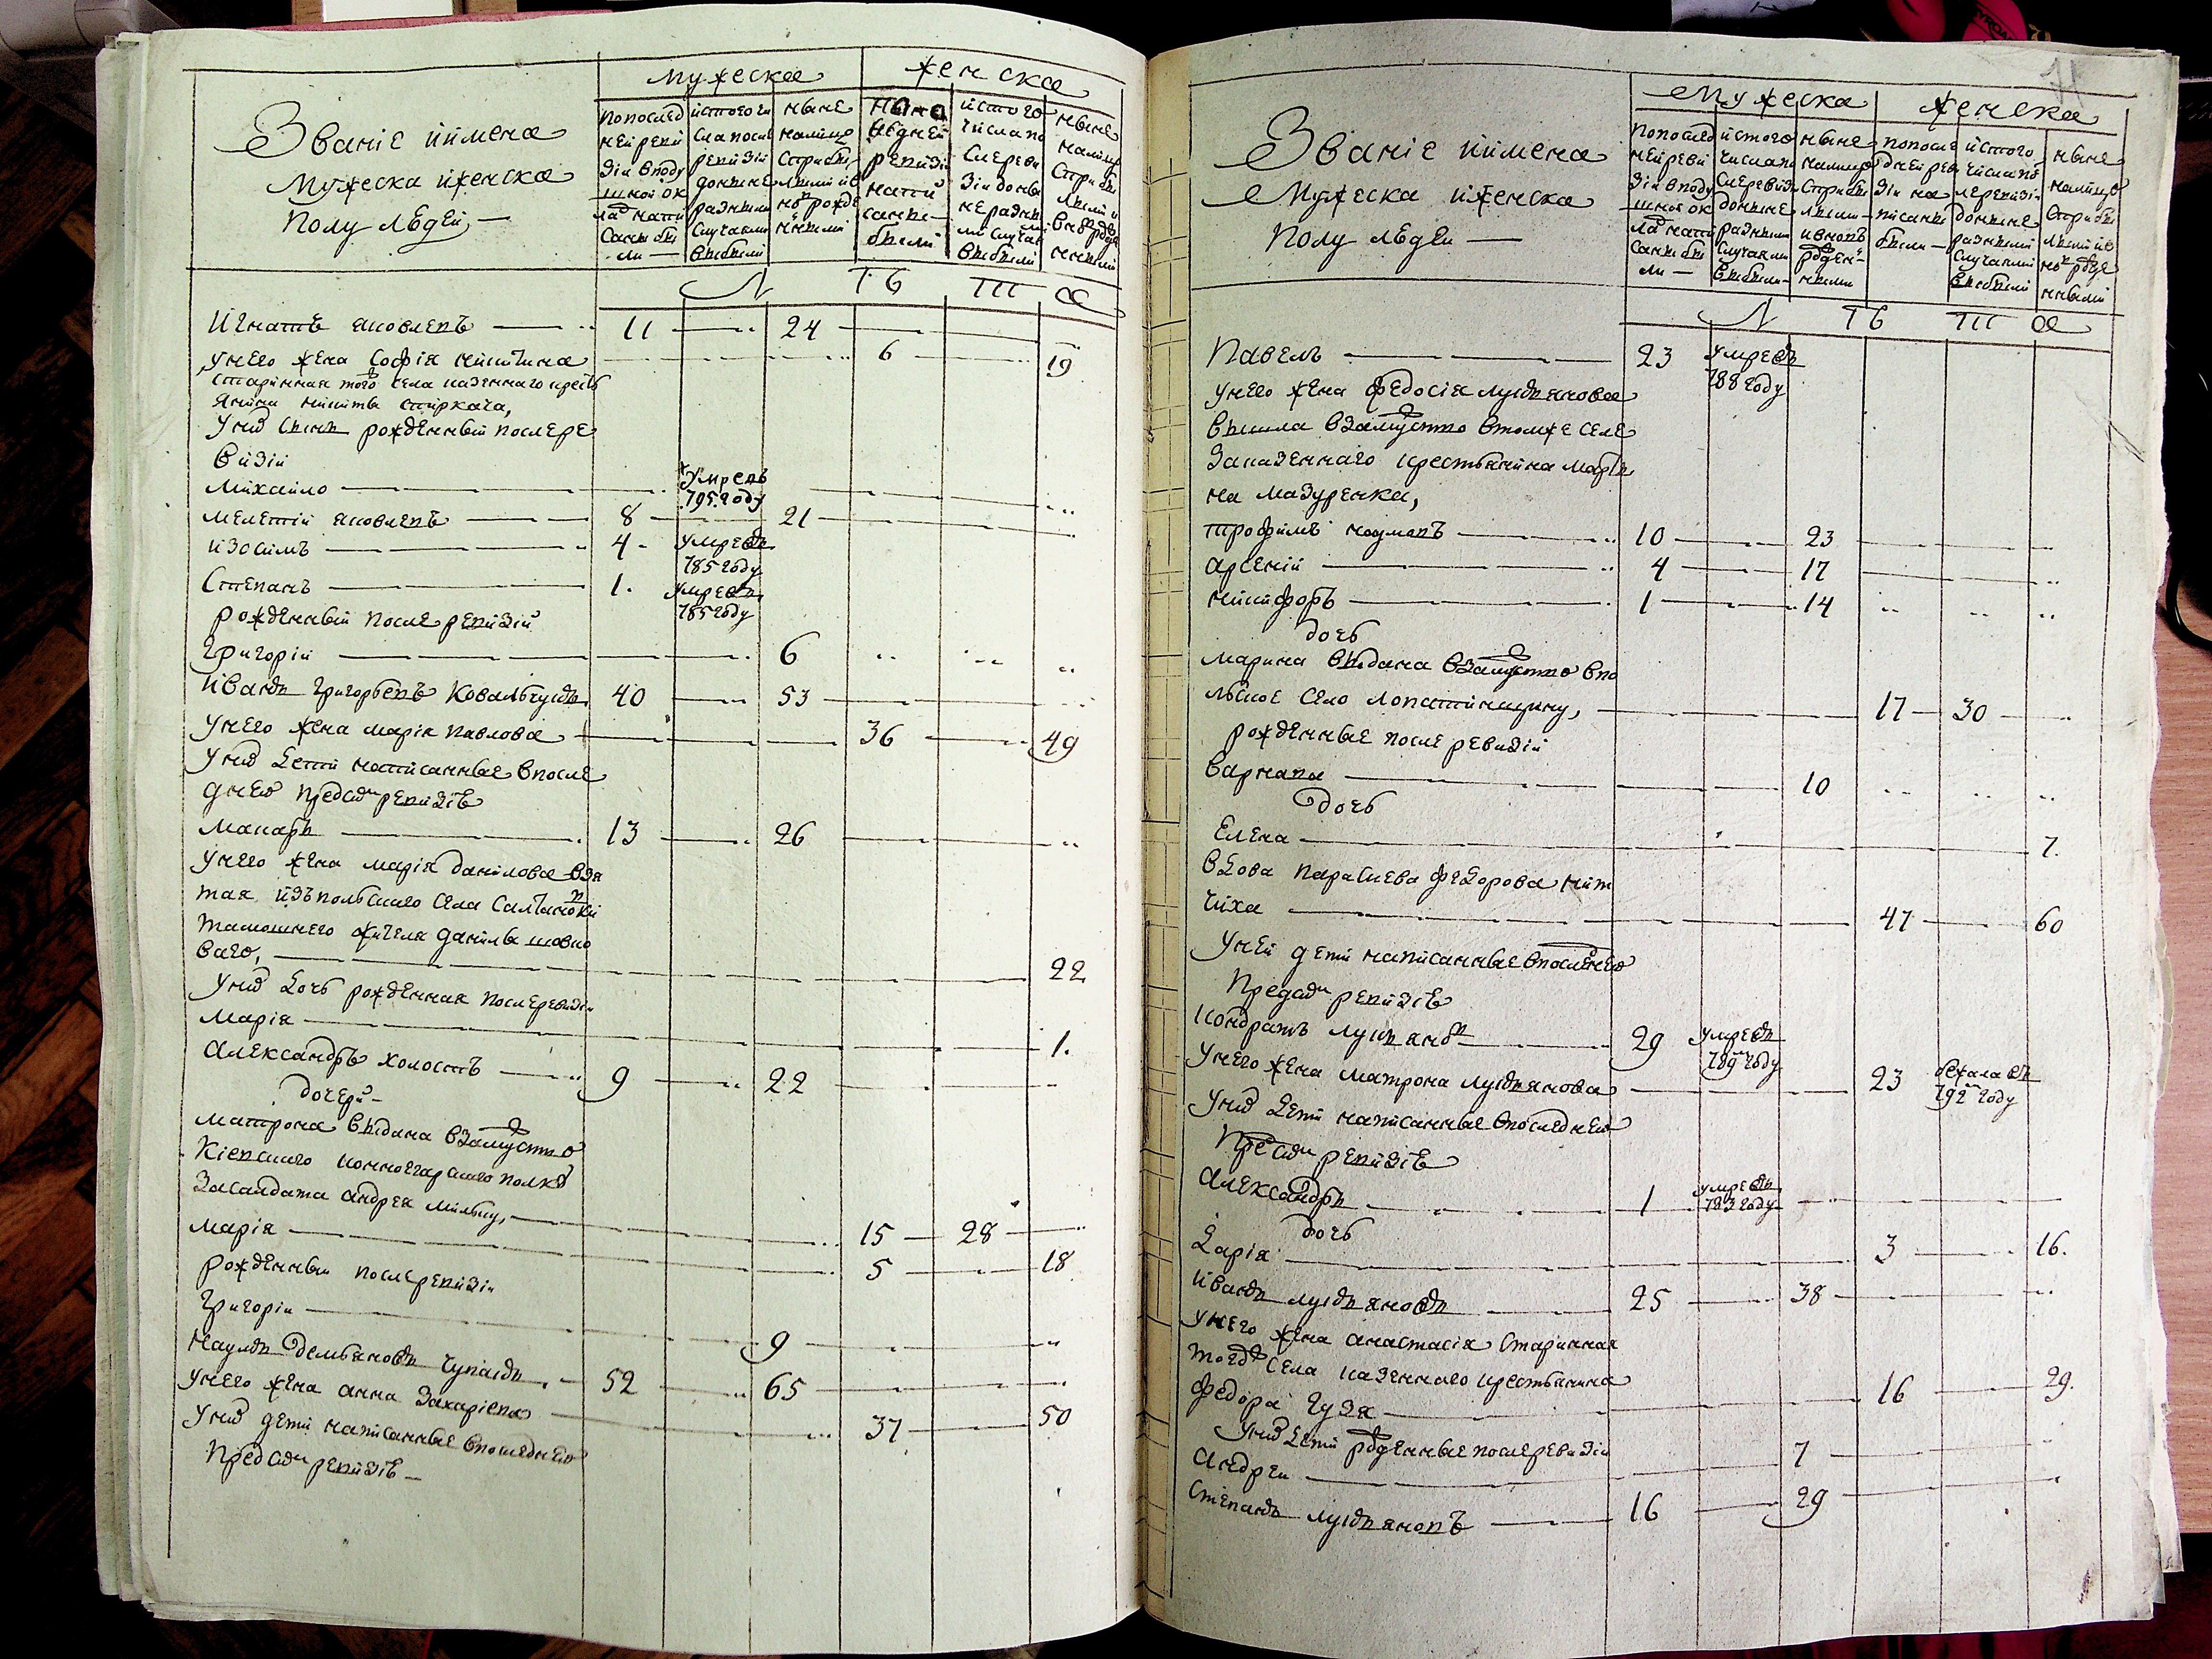 Званіе иимена
мужеска иженска
полу людей —
мужеска
женска
попослед
ней реви
зіи вподу
шной ок
лад напи
саны бы
ли —
истого чи
сла посли
ревизіи
доныне
разными
случаями
выбыли
ныне
налицо
сприбы
лыми ив
новь рожде
нными
ревизіи
напи
саны —
были
истого
числапо
слереви
зіи доны
не разны
ми случая
выбыли
ныне
налицо
сприбы
лыми
Л Ѣ Т А
Игнатъ яковлевъ 11 24
унего жена Софія никитина 6 19
старинная того села казеннаго кресть
янина никиты стиркача,
Уних сынъ рожденный послере
визіи
михайло умревъ 795 году
мелетій яковлевъ 8 21
изосимъ 4 умревъ 785 году
Степанъ 1 умревъ 785 году
рожденный после ревизіи
григорій 6
Иванъ григорьевъ Ковальчукъ 40 53
Унего жена марія павлова 36 49
Уних дети написанные впосле
днею пред сим ревизіе
макаръ 13 26
Унего жена марія данилова взя
тая изъ польскаго села
тамошнего жителя данилы
ваго, 22
Уних дочь рожденная послеревизіи
марія 1
Александръ холостъ 9 22
дочери
матрона выдана взамуство
Кіевскаго конноегарскаго полку
засалдата андрея 15 28
марія 5 18
рожденный послеревизіи
григорій 9
наумъ демьяновъ чупакъ 52 65
Унего жена анна захаріева 37 50
Уних дети написанные впоследнею
пред сим ревизіе —
71
Званіе иимена
мужеска иженска
полу людеи —
мужеска
женска
попослед
ней реви
зіи вподу
шной ок
лад напи
саны бы
ли —
истого
числапо
слеревизіи
доныне
разными
случаями
выбыли
ныне
налицо
сприбы
лыми —
ивновь
рожден
ными
попосле
дней рев
зіи на
писаны
были —
истого
числапо
слеревизіи
доныне
разными
случаями
выбыли
ныне
налицо
сприбы
лыми ив
новь рожде
нными
Л Ѣ Т А
Павелъ 23 умревъ 788 году
унего жена федосія лукьянова
вышла взамуство втомже селе
заказеннаго крестьянина марты
на мазуренка,
трофимъ наумовъ 10 23
арсеній 4 17
никифоръ 1 14
дочь
марина выдана взамуство впо
льское село лопатинщину, 17 30
рожденные после ревизіи
варнава 10
дочь
Елена 7
вдова параскева федорова
чиха 47 60
Уней дети написанные впоследнею
пред сим ревизіе
кондратъ лукьянов 29 умревъ 789 году
Унего жена матрона лукьянова 23 бежала въ 792 году
Уних дети написанные впоследнею
пред сим ревизіе
Александръ 1 умревъ 783 году
дочь
Дарія 3 16
Иванъ лукьяновъ 25 38
Унего жена анастасія старинная
тогож села казеннаго крестьянина
федора гузя 16 29
Уних дети рожденные послеревизіи
Андреи 7
степанъ лукьяновъ 16 29